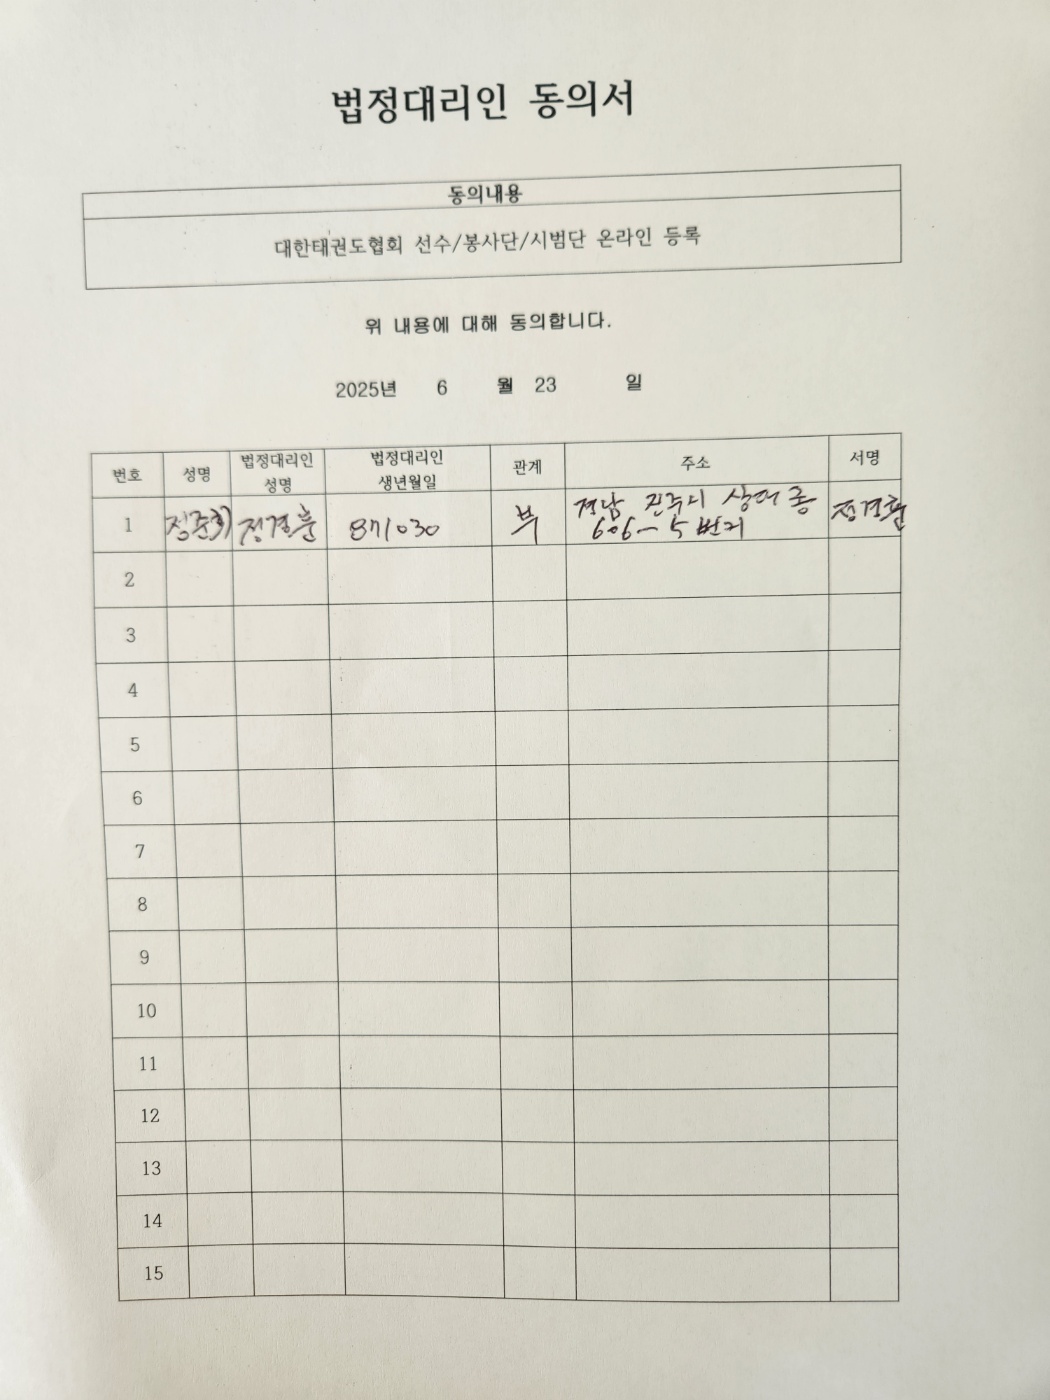 법정대리인 동의서
동의내용
대한태권도협회 선수/봉사단/시범단 온라인 등록
위 내용에 대해 동의합니다.
2025년 6 월 23 일
번호 성명 법정대리인 성명 법정대리인 생년월일 관계 주소 서명
1 정준희 정경훈 871030 부 경남 진주시 상대동 606-5 번지 정경훈
2
3
4
5
6
7
8
9
10
11
12
13
14
15